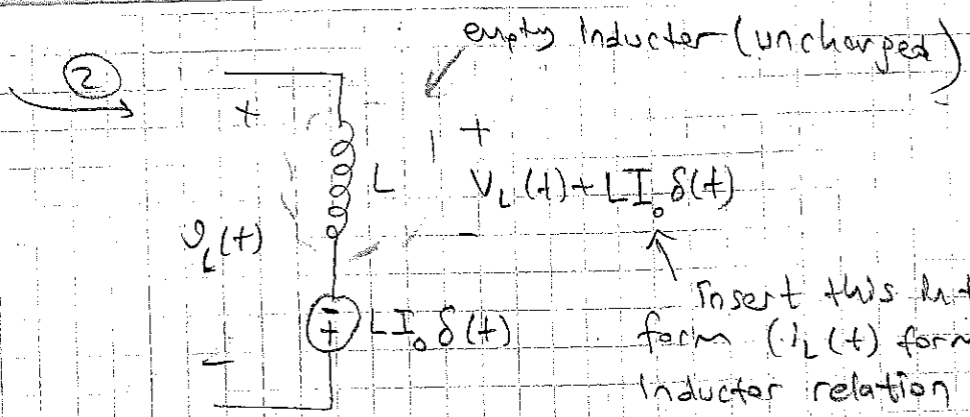 empty Inductor (uncharged)
2
+
+
L
V_L(t) + LI₀δ(t)
v_L(t)
-
-
+
LI₀δ(t)
-
insert this
form (i_L(t)
Inductor relation